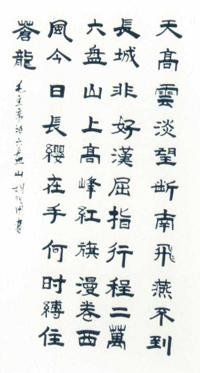 天高雲淡望断南飛燕不到
長城非好漢屈指行程二萬
六盘山上高峰紅旗漫卷西
風今日長纓在手何时縛住
蒼龍
毛主席詞六盘山